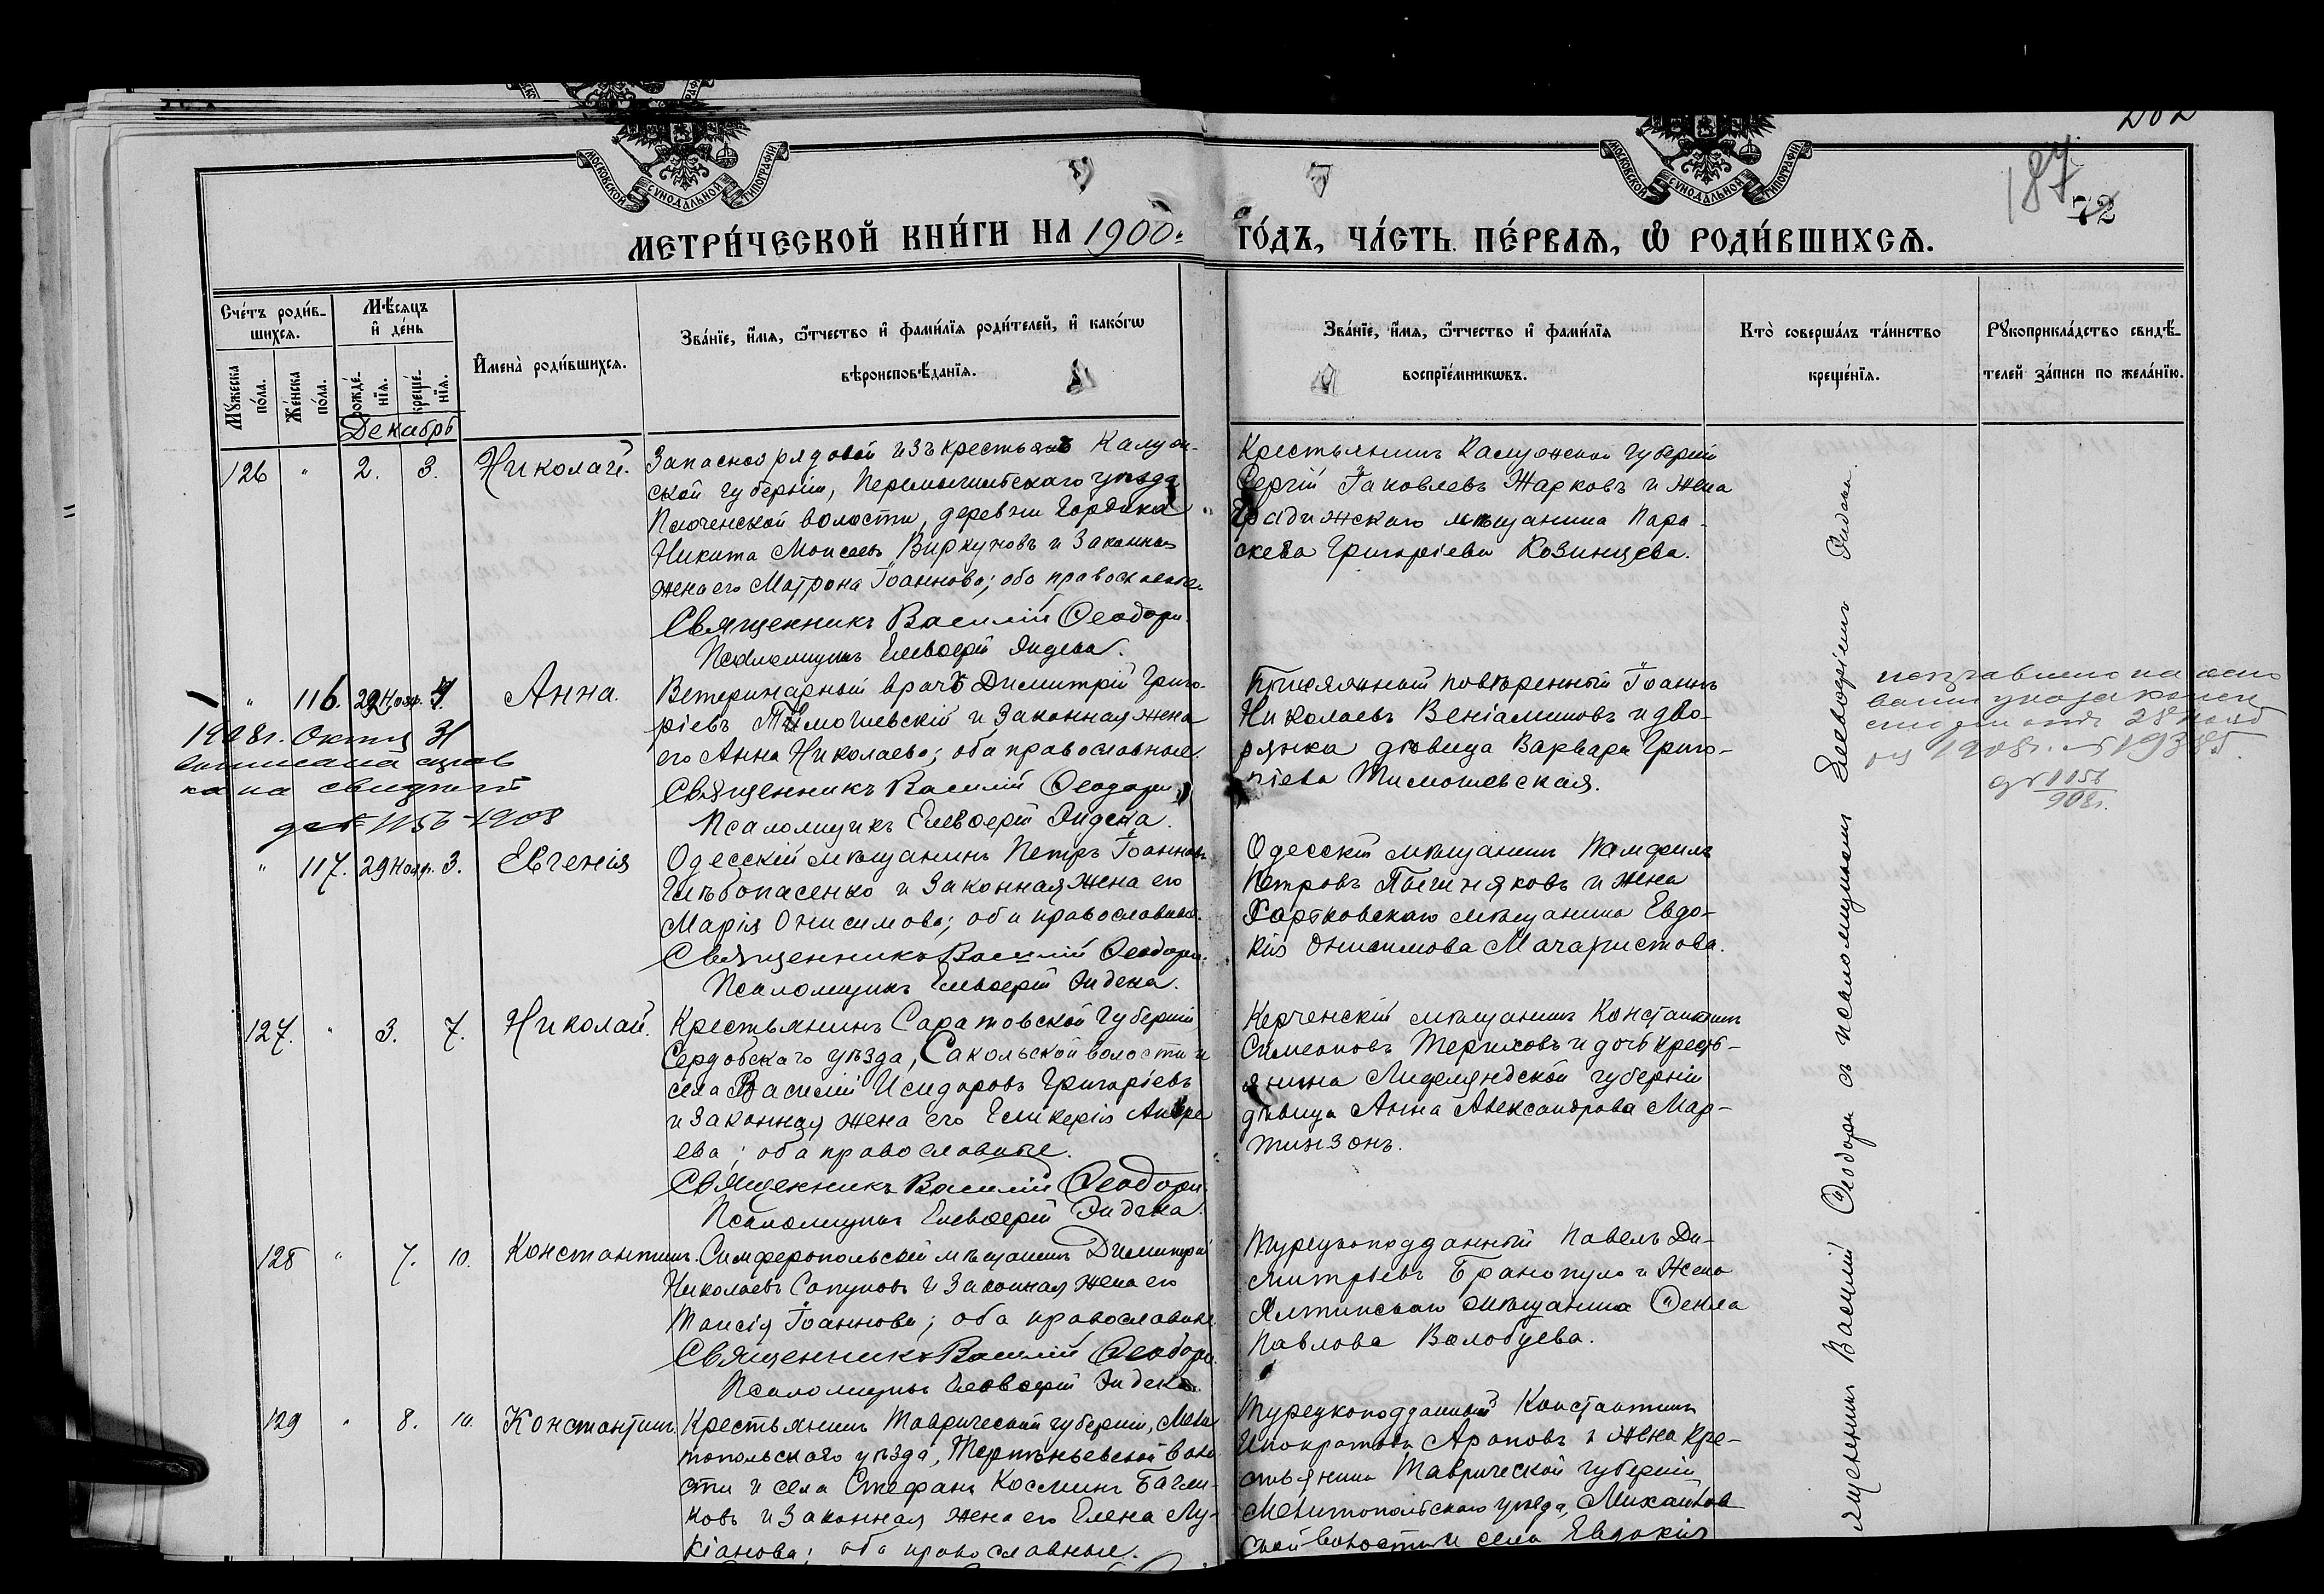 МОСКОВСКОЙ СѴНОДАЛЬНОЙ ТИПОГРАФІИ
МОСКОВСКОЙ СѴНОДАЛЬНОЙ ТИПОГРАФІИ
187
72
МЕТРИ́ЧЕСКОЙ КНИ́ГИ НА 1900. ГО́ДЪ, ЧА́СТЬ ПЕ́РВАѦ, Ѡ҆ РОДИ́ВШИХСѦ.
Сче́тъ роди́в-
шихсѧ.
Мꙋ́жеска по́ла.
Же́нска по́ла.
Мѣ́сѧцъ
и҆ де́нь
рожде́-
нїѧ.
креще́-
нїѧ.
И҆мена̀ роди́вшихсѧ.
Зва́нїе, и҆́мѧ, ѻ҆́тчество и҆ фами́лїѧ роди́телей, и҆ како́гѡ
вѣроисповѣ́данїѧ.
Зва́нїе, и҆́мѧ, ѻ҆́тчество и҆ фами́лїѧ
воспрїе́мникѡвъ.
Кто̀ соверша́лъ та́инство
креще́нїѧ.
Рꙋкоприкла́дство свидѣ́-
телей за́писи по жела́нїю.
Декабрь
126 " 2. 3. Николай.
Запасной рядовой изъ крестьянъ Калуж-
ской губерніи, Перемышльскаго уѣзда
волости, деревни
Никита Моисеевъ Виркуновъ и законная
жена его Матрона Іоаннова; оба православные
Священникъ Василій Ѳеодори.
Псаломщикъ Елевѳерій Яидека.
Крестьянинъ Калужской губерніи
Сергій Іаковлевъ Жарковъ и жена
мѣщанина Пара-
скева Григоріева Козинцева.
" 116. 29 Нояб. Анна.
Ветеринарный врачъ Димитрій Григо-
ріевъ Тимошевскій и законная жена
его Анна Николаева; оба православные.
Священникъ Василій Ѳеодори
Псаломщикъ Елевѳерій Яидека.
Присяжный повѣренный Іоаннъ
Николаевъ Веніаминовъ и дво-
рянка дѣвица Варвара Григо-
ріева Тимошевская.
1908г. Октяб 31
выписана справ
ка на
1156 1908
исправлено на осно
ваніи указа
отъ 28
1908г. 19385
1156
908г.
" 117. 29 Нояб. 3. Евгенія
Одесскій мѣщанинъ Петръ Іоанновъ
и законная жена его
Марія Онисимова; оба православные.
Священникъ Василій Ѳеодори.
Псаломщикъ Елевѳерій Яидека.
Одесскій мѣщанинъ Памфилъ
Петровъ и жена
Харьковскаго мѣщанина Евдо-
кія Онисимова
127. " 3. 7. Николай.
Крестьянинъ Саратовской губерніи
Сердобскаго уѣзда, Сакольской волости и
села Василій Исидоровъ Григоріевъ
и законная жена его Гликерія Андре
ева; оба православные.
Священникъ Василій Ѳеодори.
Псаломщикъ Елевѳерій Яидека.
Керченскій мѣщанинъ Константинъ
Симеоновъ Териховъ и дочь кресть-
янина Лифляндской губерніи
дѣвица Анна Александрова Мар-
тинзонъ.
128 " 7. 10. Константинъ.
Симферопольскій мѣщанинъ Димитрій
Николаевъ Сапуновъ и законная жена его
Таисія Іоаннова; оба православные
Священникъ Василій Ѳеодори.
Псаломщикъ Елевѳерій Яидека.
Турецкоподданный Павелъ Ди-
митріевъ Бранопуло и жена
Ялтинскаго мѣщанина Ѳекла
Павлова Волобуева.
129 " 8. 10. Константинъ.
Крестьянинъ Таврической губерніи, Мели
топольскаго уѣзда, воло
сти и села Стефанъ Косминъ
и законная жена его Елена Лу-
кіанова; оба православные.
Турецкоподданный Константинъ
Араповъ и жена кре-
стьянина Таврической губерніи
Мелитопольскаго уѣзда, Михайлов
ской волости и села Евдокія
Священникъ Василій Ѳеодори съ псаломщикомъ Елевѳеріемъ Яидека.